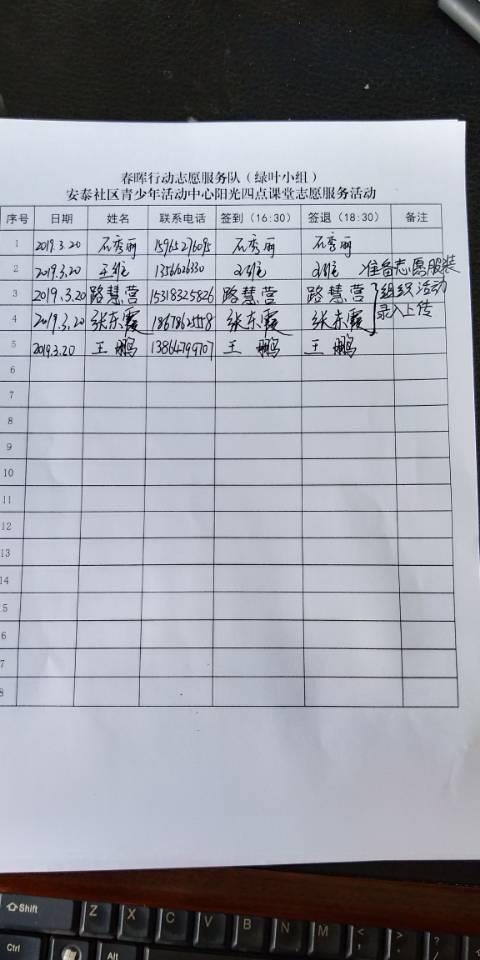 春晖行动志愿服务队(绿叶小组)
安泰社区青少年活动中心阳光四点课堂志愿服务活动
序号 日期 姓名 联系电话 签到(16:30) 签退(18:30) 备注
1 2019.3.20 石秀丽 15965276095 石秀丽 石秀丽
2 2019.3.20 王维 王维 王维 准备志愿服装
3 2019.3.20 路慧营 15318325826 路慧营 路慧营 组织活动
4 2019.3.20 张东霞 张东霞 张东霞 录入上传
5 2019.3.20 王鹏 13864799707 王鹏 王鹏
6
7
8
9
10
11
12
13
14
5
6
7
8
Shift Z X C V B N M < >
Ctrl Alt